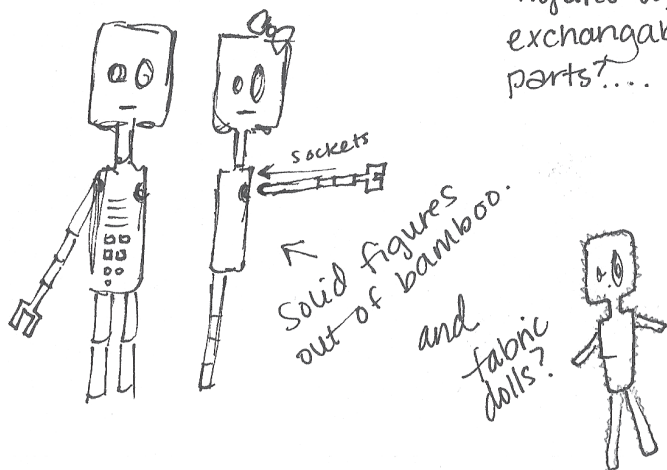 exchangab
parts?....
sockets
solid figures
out of bamboo.
and
fabric
dolls?